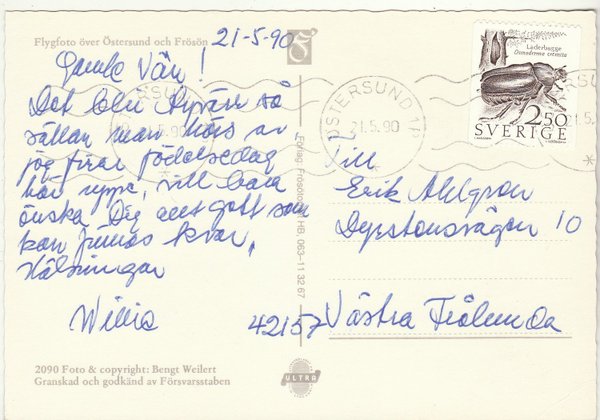 Flygfoto över Östersund och Frösön
21-5-90
Gamle Vän!
Det blir så
sällan man hörs av
jag firar födelsedag
här uppe, vill bara
önska Dig allt gott som
kan finnas kvar,
Hälsningar
2090 Foto & copyright: Bengt Weilert
Granskad och godkänd av Försvarsstaben
Förlag: HB. 063-11 32 67
ULTRA
ÖSTERSUND 1
21.5.90
Läderbagge
Osmoderma eremita
2.50
SVERIGE
Till
Erik Ahlgren
10
42157 Västra Frölunda